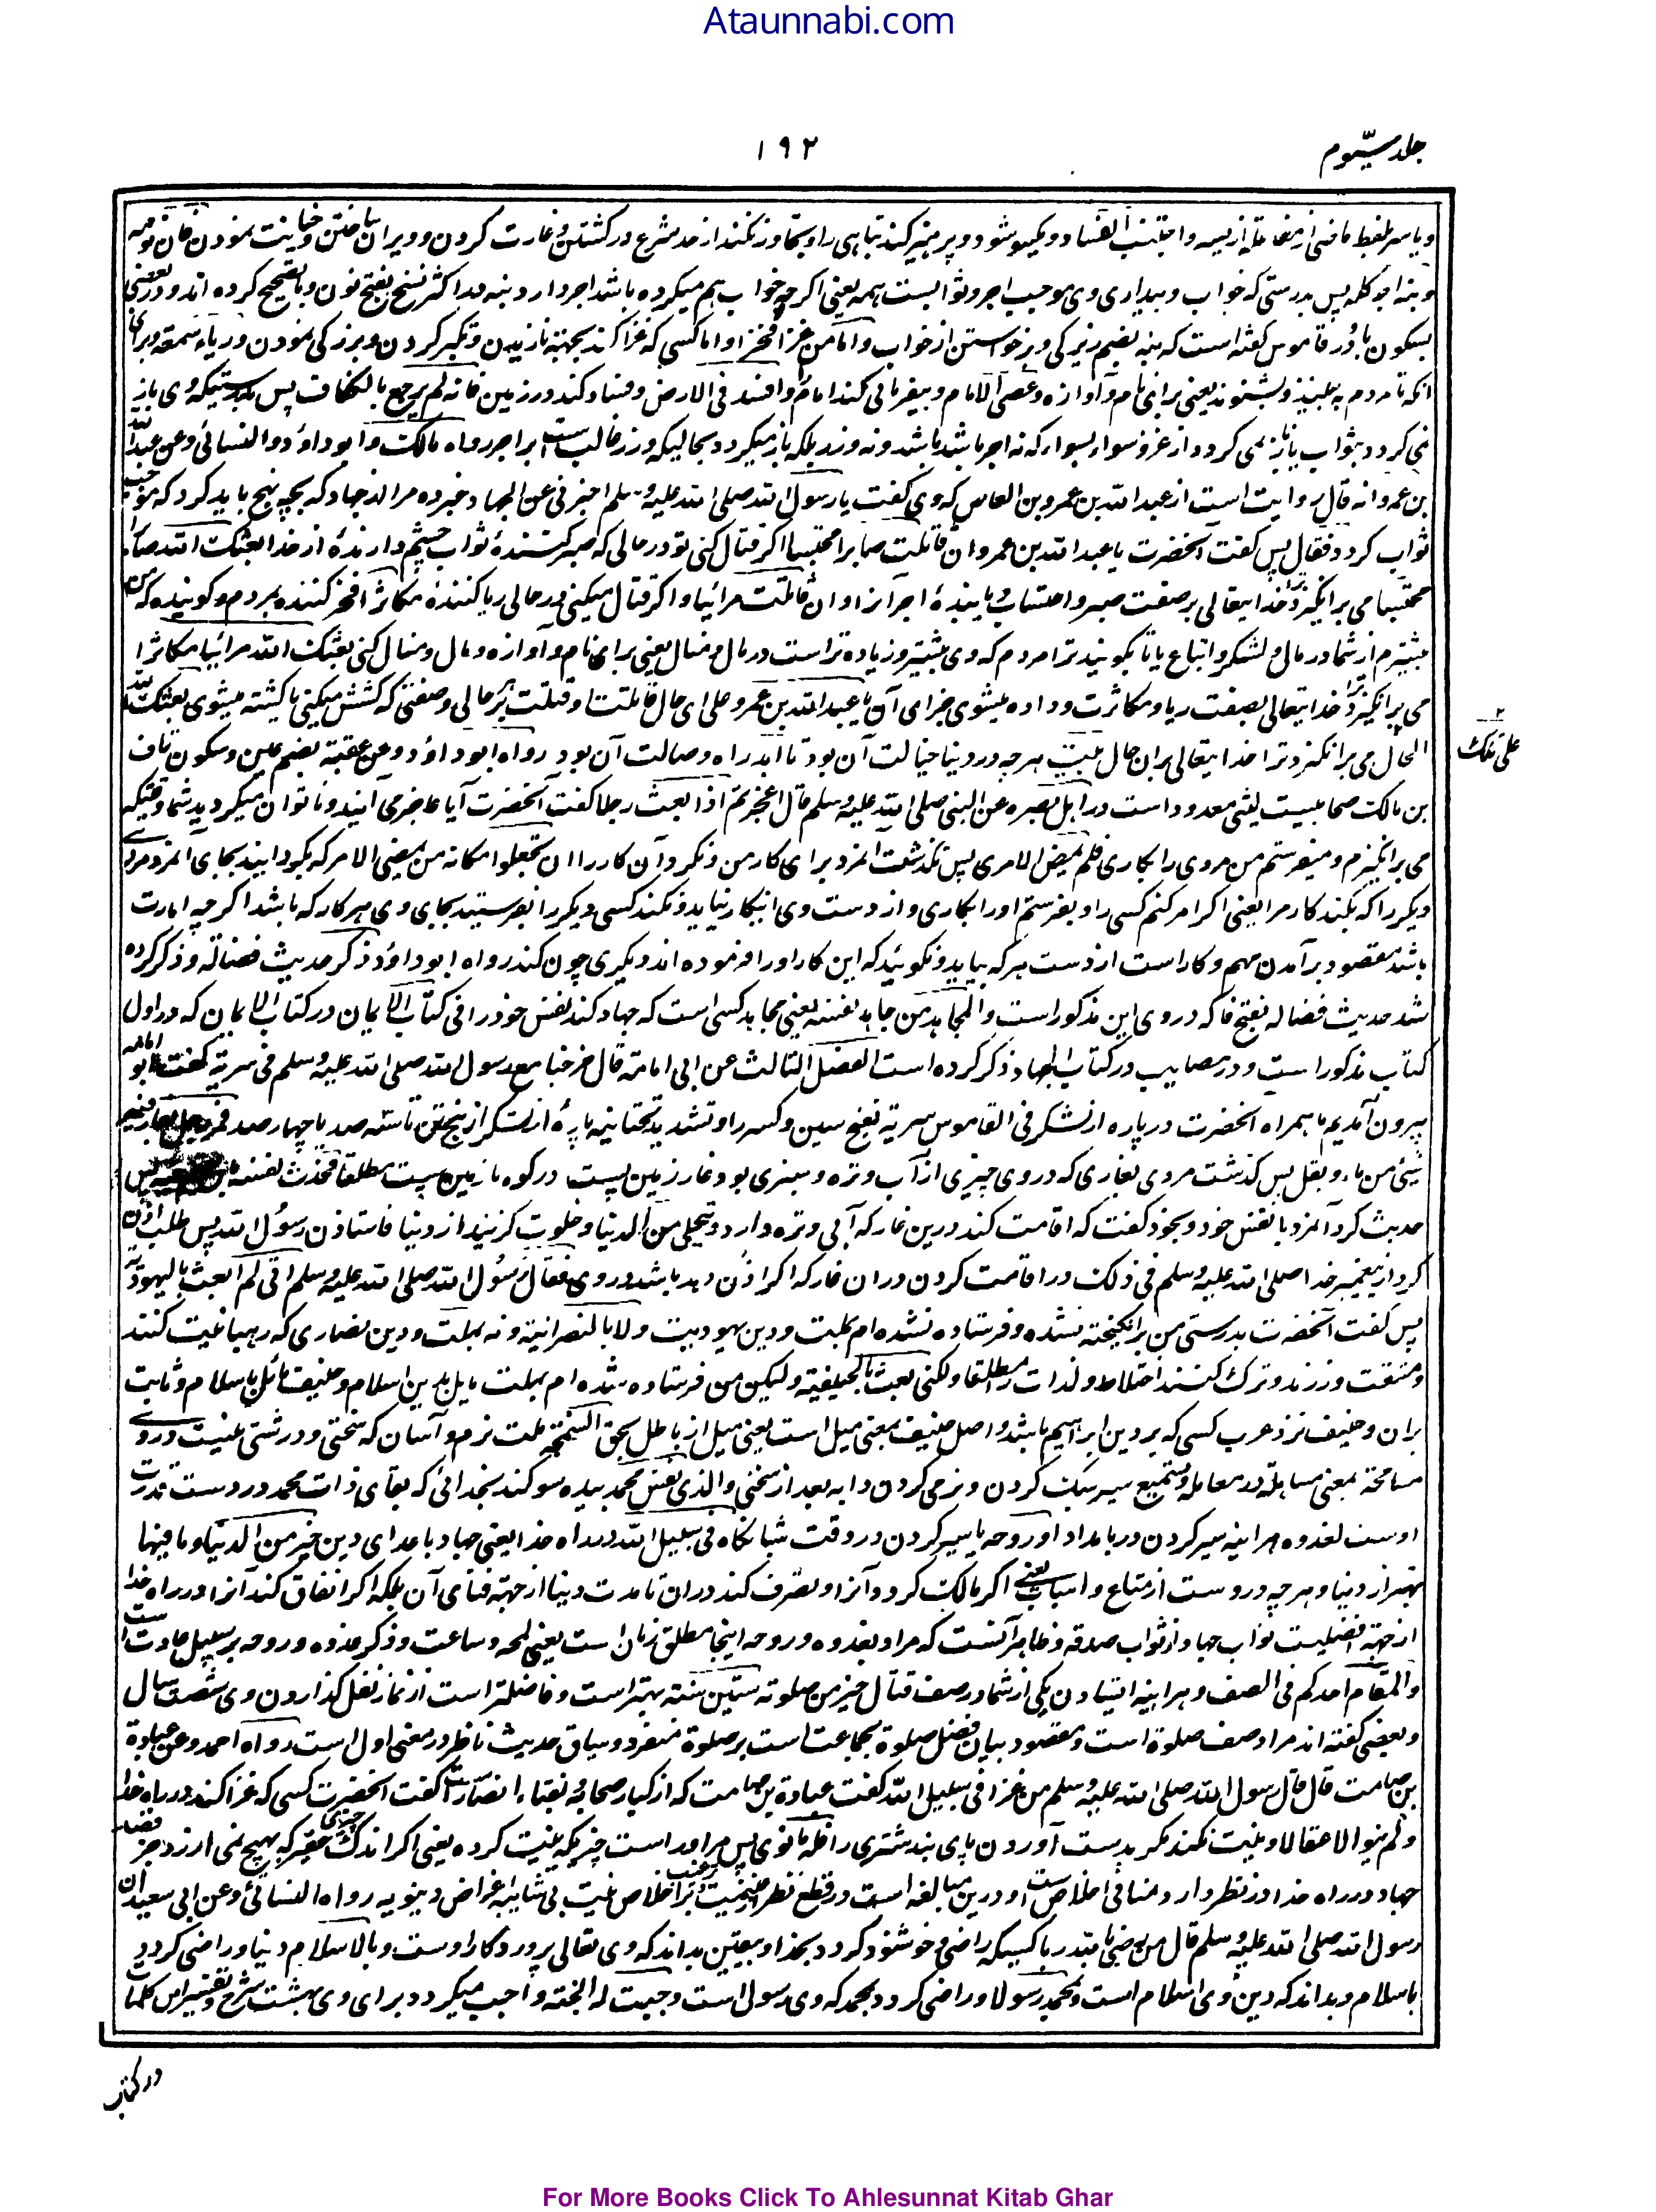 Ataunnabi.com
جلد سیّوم
۱۹۲
ویاسر بلفظ ماضی از مفاعله از یسر واجتنب الفساد ویکسو شود وپرهیز کند تباهی را وتجاوز نکند از حد شرع در کشتن وغارت کردن وویران ساختن وخیانت نمودن فان نومه
ونبهه اجر کله پس بدرستی که خواب وبیداری وی موجب اجر وثوابست همه یعنی اگرچه خواب هم میکرده باشد اجر دارد ونبه در اکثر نسخ بفتح نون وبا تصحیح کرده اند ودر بعضی
بسکون با ودر قاموس گفته است که نبه بضم زیرکی وبرخواستن از خواب واما من غزا فخرا واما کسی که غزا کند بجهة نازیدن وتکبر کردن وبزرگی نمودن وریاء وسمعة وبرای
آنکه تا مردم به بینند وبشنوند یعنی برای نام وآوازه وعصی الامام وبیفرمانی کند امام را وافسد فی الارض وفساد کند در زمین فانه لم یرجع بالکفاف پس بدرستیکه وی باز
نمی گردد بثواب یا باز نمی گردد از غزو سواء بسواء که نه اجر باشد باشد ونه وزر بلکه باز میگردد بحالیکه وزر غالب است بر اجر رواه مالک وابو داؤد والنسائی وعن عبد الله
بن عمرو انه قال روایت است از عبد الله بن عمرو بن العاص که وی گفت یا رسول الله صلی الله علیه وسلم اخبرنی عن الجهاد خبر ده مرا از جهاد که بچه نهج باید کرد که موجب
ثواب گردد فقال پس گفت آنحضرت یا عبد الله بن عمرو ان قاتلت صابرا محتسبا اگر قتال کنی تو در حالی که صبر کنندۀ ثواب چشم دارندۀ از خدا بعثک الله صابرا
محتسبا می برانگیزد ترا خدایتعالی بر صفت صبر واحتساب ویابندۀ اجر آنرا وان قاتلت مرائیا واگر قتال میکنی در حالی ریا کنندۀ مکاثرا فخر کننده بمردم وگوینده که من
بیشترم از شما در مال ولشکر واتباع یا تا بگویند ترا مردم که وی بیشتر وزیاده تر است در مال ومنال یعنی برای نام وآوازه ومال ومنال کنی بعثک الله مرائیا مکاثرا
می برانگیزد ترا خدایتعالی بصفت ریا ومکاثرت وداده میشوی جزای آن یا عبد الله بن عمرو علی ای حال قاتلت او قتلت بر هر حالی وصفتی که کشش میکنی یا کشته میشوی بعثک الله
علی تلک
الحال می برانگیزد ترا خدایتعالی بران حال نیت هرچه در دنیا خیالت آن بود تا ابد راه وصالت آن بود رواه ابو داؤد وعن عقبة بضم عین وسکون قاف
بن مالک صحابیست لیثی معدود است در اهل بصره عن النبی صلی الله علیه وسلم قال اعجزتم اذا بعثت رجلا گفت آنحضرت آیا عاجز می آئید وناتوان میگردید شما وقتیکه
می برانگیزم ومیفرستم من مردی را بکاری فلم یمض لامری پس نگذشت آنمرد برای کار من ونکرد آن کار را ان تجعلوا مکانه من یمضی لامری که بگردانید بجای آنمرد مردی
دیگر را که بکند کار مرا یعنی اگر امر کنم کسی را وبفرستم او را بکاری واز دست وی اینکار نیاید ونکند کسی دیگر را بفرستید بجای وی هر کار که باشد اگرچه امارت
باشد مقصود برآمدن مهم وکار است از دست هر که بیاید ونگوئید که این کار او را فرموده اند دیگری چون کند رواه ابو داؤد ذکر حدیث فضالة وذکر کرده
شد حدیث فضاله بفتح فا که در وی این مذکور است والمجاهد من جاهد نفسه یعنی مجاهد کسی است که جهاد کند نفس خود را فی کتاب الایمان در کتاب الایمان که در اول
کتاب مذکور است ودر مصابیح در کتاب الجهاد ذکر کرده است الفصل الثالث عن ابی امامة قال خرجنا مع رسول الله صلی الله علیه وسلم فی سریة گفت ابو امامه
بیرون آمدیم ما همراه آنحضرت در پاره از لشکر فی القاموس سریة بفتح سین وکسر را وتشدید تحتانیه پارۀ از لشکر از پنج تن تا سه صد یا چهار صد فمر رجل بغار فیه
شیئ من ماء وبقل پس گذشت مردی بغاری که در وی چیزی از آب وتره وسبزی بود وغار زمین پست در کوه یا زمین پست مطلقا فحدث نفسه پس
حدیث کرد آنمرد با نفس خود وبخود گفت که اقامت کند درین غار که آبی وتره دارد ویتخلی من الدنیا وخلوت گزیند از دنیا فاستاذن رسول الله پس طلب اذن
کرد از پیغمبر خدا صلی الله علیه وسلم فی ذلک در اقامت کردن دران غار که اگر اذن دهد باشد در وی فقال رسول الله صلی الله علیه وسلم انی لم ابعث بالیهودیة
پس گفت آنحضرت بدرستی من برانگیخته نشده وفرستاده نشده ام بملت ودین یهودیت ولا بالنصرانیة ونه بملت ودین نصاری که رهبانیت کنند
ومشقت ورزند وترک کنند اختلاط ولذات را مطلقا ولکنی بعثت بالحنیفیة ولیکن من فرستاده شده ام بملت مایل بدین اسلام وحنیف مائل باسلام وثابت
بران وحنیف نزد عرب کسی که بر دین ابراهیم باشد واصل حنیف بمعنی میل است یعنی میل از باطل بحق السمحة ملت نرم وآسان که سختی ودرشتی نیست در وی
مسامحة بمعنی مساهلة در معاملة وتسمیح سیر سبک کردن ونرمی کردن دابه بعد از سختی والذی نفس محمد بیده سوگند بخدائی که بقای ذات محمد در دست قدرت
اوست لغدوه هر اینه سیر کردن در بامداد او روحه یا سیر کردن در وقت شبانگاه فی سبیل الله در راه خدا یعنی جهاد با عدای دین خیر من الدنیا وما فیها
بهتر از دنیا وهرچه دروست از متاع واسباب یعنی اگر مالک گردد آنرا وتصرف کند دران تا مدت دنیا از جهة فنای آن بلکه اگر انفاق کند آنرا در راه خدا
از جهة افضلیت ثواب جهاد از ثواب صدقه وظاهر آنست که مراد بغدوه وروحه اینجا مطلق زمان است یعنی لمحه وساعت وذکر غدوه وروحه بر سبیل عادت است
والمقام احدکم فی الصف وهر اینه ایستادن یکی از شما در صف قتال خیر من صلوته ستین سنة بهتر است وفاضلتر است از نماز نفل گذاردن وی شصت سال
وبعضی گفته اند مراد صف صلوة است ومقصود بیان فضل صلوة بجماعت است بر صلوة منفرد وسیاق حدیث ناظر در معنی اول است رواه احمد وعن عبادة
بن صامت قال قال رسول الله صلی الله علیه وسلم من غزا فی سبیل الله گفت عبادة بن صامت که از کبار صحابه ونقباء انصار است گفت آنحضرت کسی که غزا کند در راه خدا
ولم ینو الا عقالا ونیت نکند مگر بدست آوردن پای بند شتری را فله ما نوی پس مر او راست چیزیکه نیت کرده یعنی اگر اندک چیزی حقیر که بهیچ نمی ارزد جز قصد
جهاد در راه خدا در نظر دارد منافی اخلاص است ودرین مبالغه است در قطع نظر از غنیمت وترغیب بر اخلاص نیت بی شایبه اغراض دنیویه رواه النسائی وعن ابی سعید ان
رسول الله صلی الله علیه وسلم قال من رضی بالله ربا کسیکه راضی وخوشنود گردد بخدا وبیقین بداند که وی تعالی پروردگار اوست وبالاسلام دینا وراضی گردد
باسلام وبداند که دین وی اسلام است وبمحمد رسولا وراضی گردد بمحمد که وی رسول است وجبت له الجنة واجب میگردد برای وی بهشت شرح وتفسیر این کلمات
در کتاب
For More Books Click To Ahlesunnat Kitab Ghar